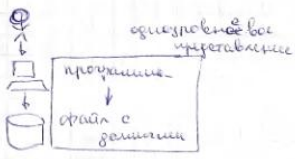 одноуровневое
представление
программа
файл с
данными